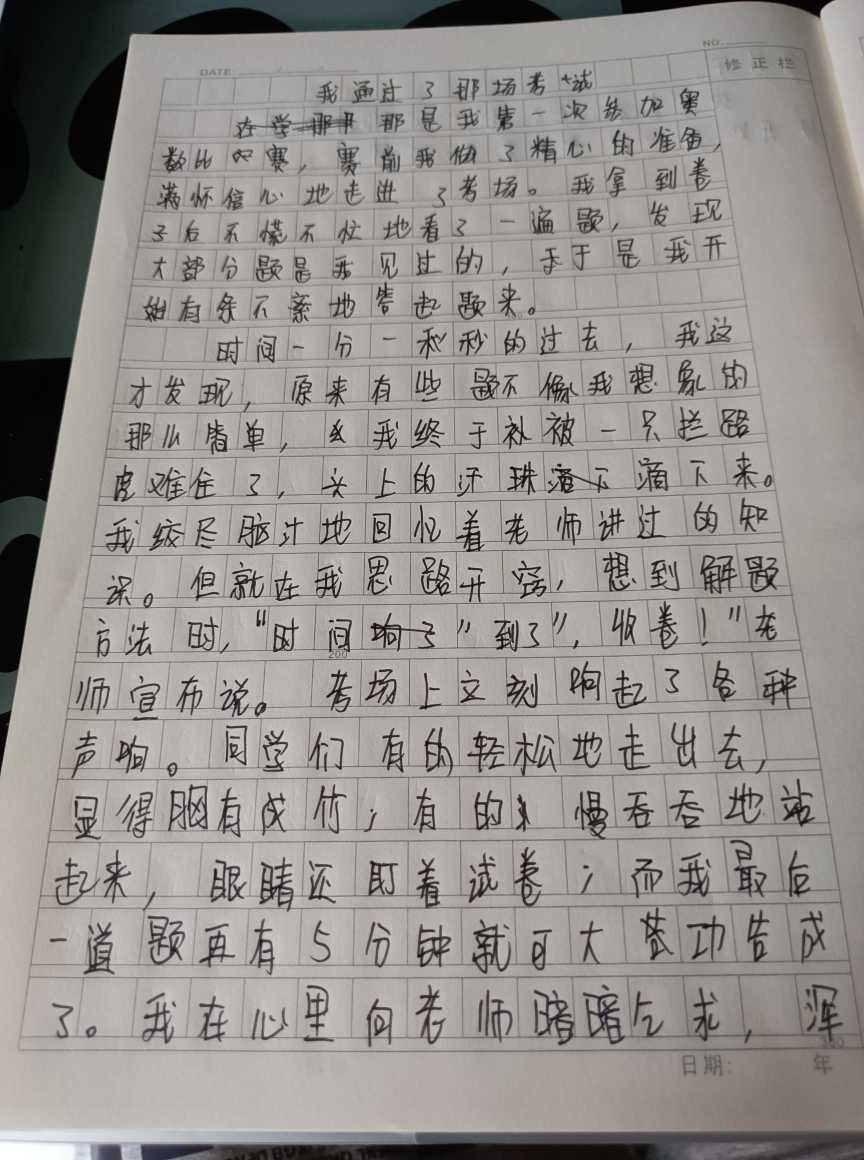 DATE
NO.
修正栏
我通过了那场考试
那是我第一次参加奥
数比赛，赛前我做了精心的准备，
满怀信心地走进了考场。我拿到卷
子后不慌不忙地看了一遍题，发现
大部分题是我见过的，于是我开
始有条不紊地答起题来。
时间一分一秒秒的过去，我这
才发现，原来有些题不像我想象的
那么简单，我终于被一只拦路
虎难住了，头上的汗珠滴下来。
我绞尽脑汁地回忆着老师讲过的知
识。但就在我思路开窍，想到解题
方法时，“时间到了”，收卷！”老
200
师宣布说。考场上立刻响起了各种
声响。同学们有的轻松地走出去，
显得胸有成竹；有的慢吞吞地站
起来，眼睛还盯着试卷；而我最后
一道题再有5分钟就可大功告成
了。我在心里向老师暗暗乞求，浑
300
日期：　年